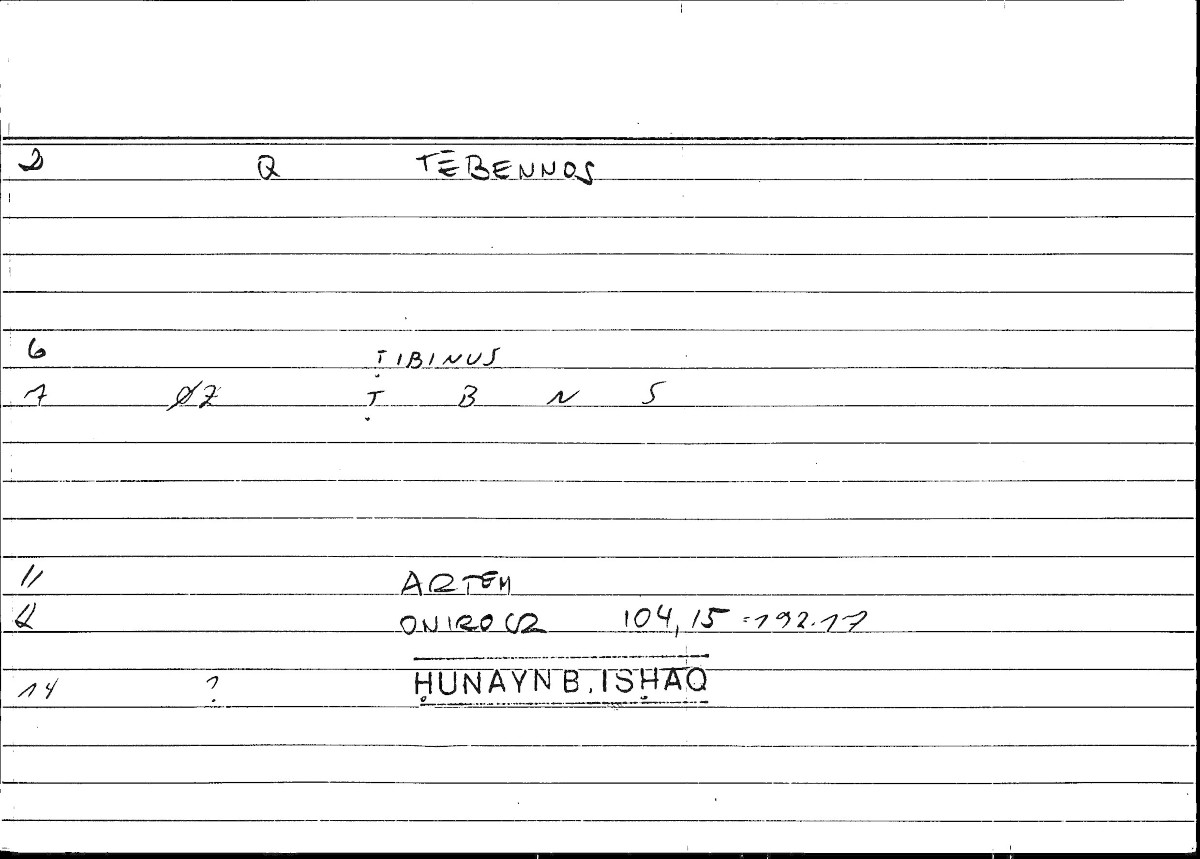 2 Q TEBENNOS
6 ṬIBINUS
7 ØZ Ṭ B N S
11 ARTEM
12 ONIROCR 104,15 = 192.17
14 ? ḤUNAYN B. ISḤĀQ